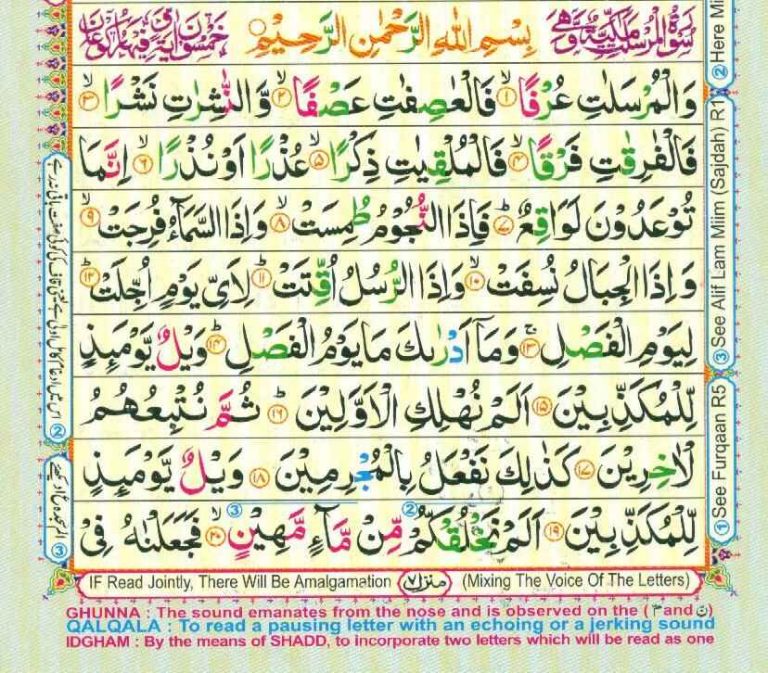 سُوْرَةُ الْمُرْسَلٰتِ مَكِّيَّةٌ وَّهِیَ بِسْمِ اللهِ الرَّحْمٰنِ الرَّحِيْمِ خَمْسُوْنَ اٰيَةً وَّفِيْهَا رُكُوْعَانِ
وَالْمُرْسَلٰتِ عُرْفًا ۙ‏﴿۱﴾ فَالْعٰصِفٰتِ عَصْفًا ۙ‏﴿۲﴾ وَّالنّٰشِرٰتِ نَشْرًا ۙ‏﴿۳﴾
فَالْفٰرِقٰتِ فَرْقًا ۙ‏﴿۴﴾ فَالْمُلْقِيٰتِ ذِكْرًا ۙ‏﴿۵﴾ عُذْرًا اَوْ نُذْرًا ۙ‏﴿۶﴾ اِنَّمَا
تُوْعَدُوْنَ لَوَاقِعٌ ؕ‏﴿۷﴾ فَاِذَا النُّجُوْمُ طُمِسَتْ ۙ‏﴿۸﴾ وَاِذَا السَّمَآءُ فُرِجَتْ ۙ‏﴿۹﴾
وَاِذَا الْجِبَالُ نُسِفَتْ ۙ‏﴿۱۰﴾ وَاِذَا الرُّسُلُ اُقِّتَتْ ؕ‏﴿۱۱﴾ لِاَىِّ يَوْمٍ اُجِّلَتْ ؕ‏﴿۱۲﴾
لِيَوْمِ الْفَصْلِ ۚ‏﴿۱۳﴾ وَمَاۤ اَدْرٰىكَ مَا يَوْمُ الْفَصْلِ ؕ‏﴿۱۴﴾ وَيْلٌ يَّوْمَئِذٍ
لِّلْمُكَذِّبِيْنَ ﴿۱۵﴾ اَلَمْ نُهْلِكِ الْاَوَّلِيْنَ ؕ‏﴿۱۶﴾ ثُمَّ نُتْبِعُهُمُ
الْاٰخِرِيْنَ ﴿۱۷﴾ كَذٰلِكَ نَفْعَلُ بِالْمُجْرِمِيْنَ ﴿۱۸﴾ وَيْلٌ يَّوْمَئِذٍ
لِّلْمُكَذِّبِيْنَ ﴿۱۹﴾ اَلَمْ نَخْلُقْكُّمْ مِّنْ مَّآءٍ مَّهِيْنٍ ۙ‏﴿۲۰﴾ فَجَعَلْنٰهُ فِىْ
② Here Mi
③ See Alif Lam Miim (Sajdah) R1
① See Furqaan R5
IF Read Jointly, There Will Be Amalgamation منزل ۷ (Mixing The Voice Of The Letters)
GHUNNA : The sound emanates from the nose and is observed on the ( م and ن )
QALQALA : To read a pausing letter with an echoing or a jerking sound
IDGHAM : By the means of SHADD, to incorporate two letters which will be read as one